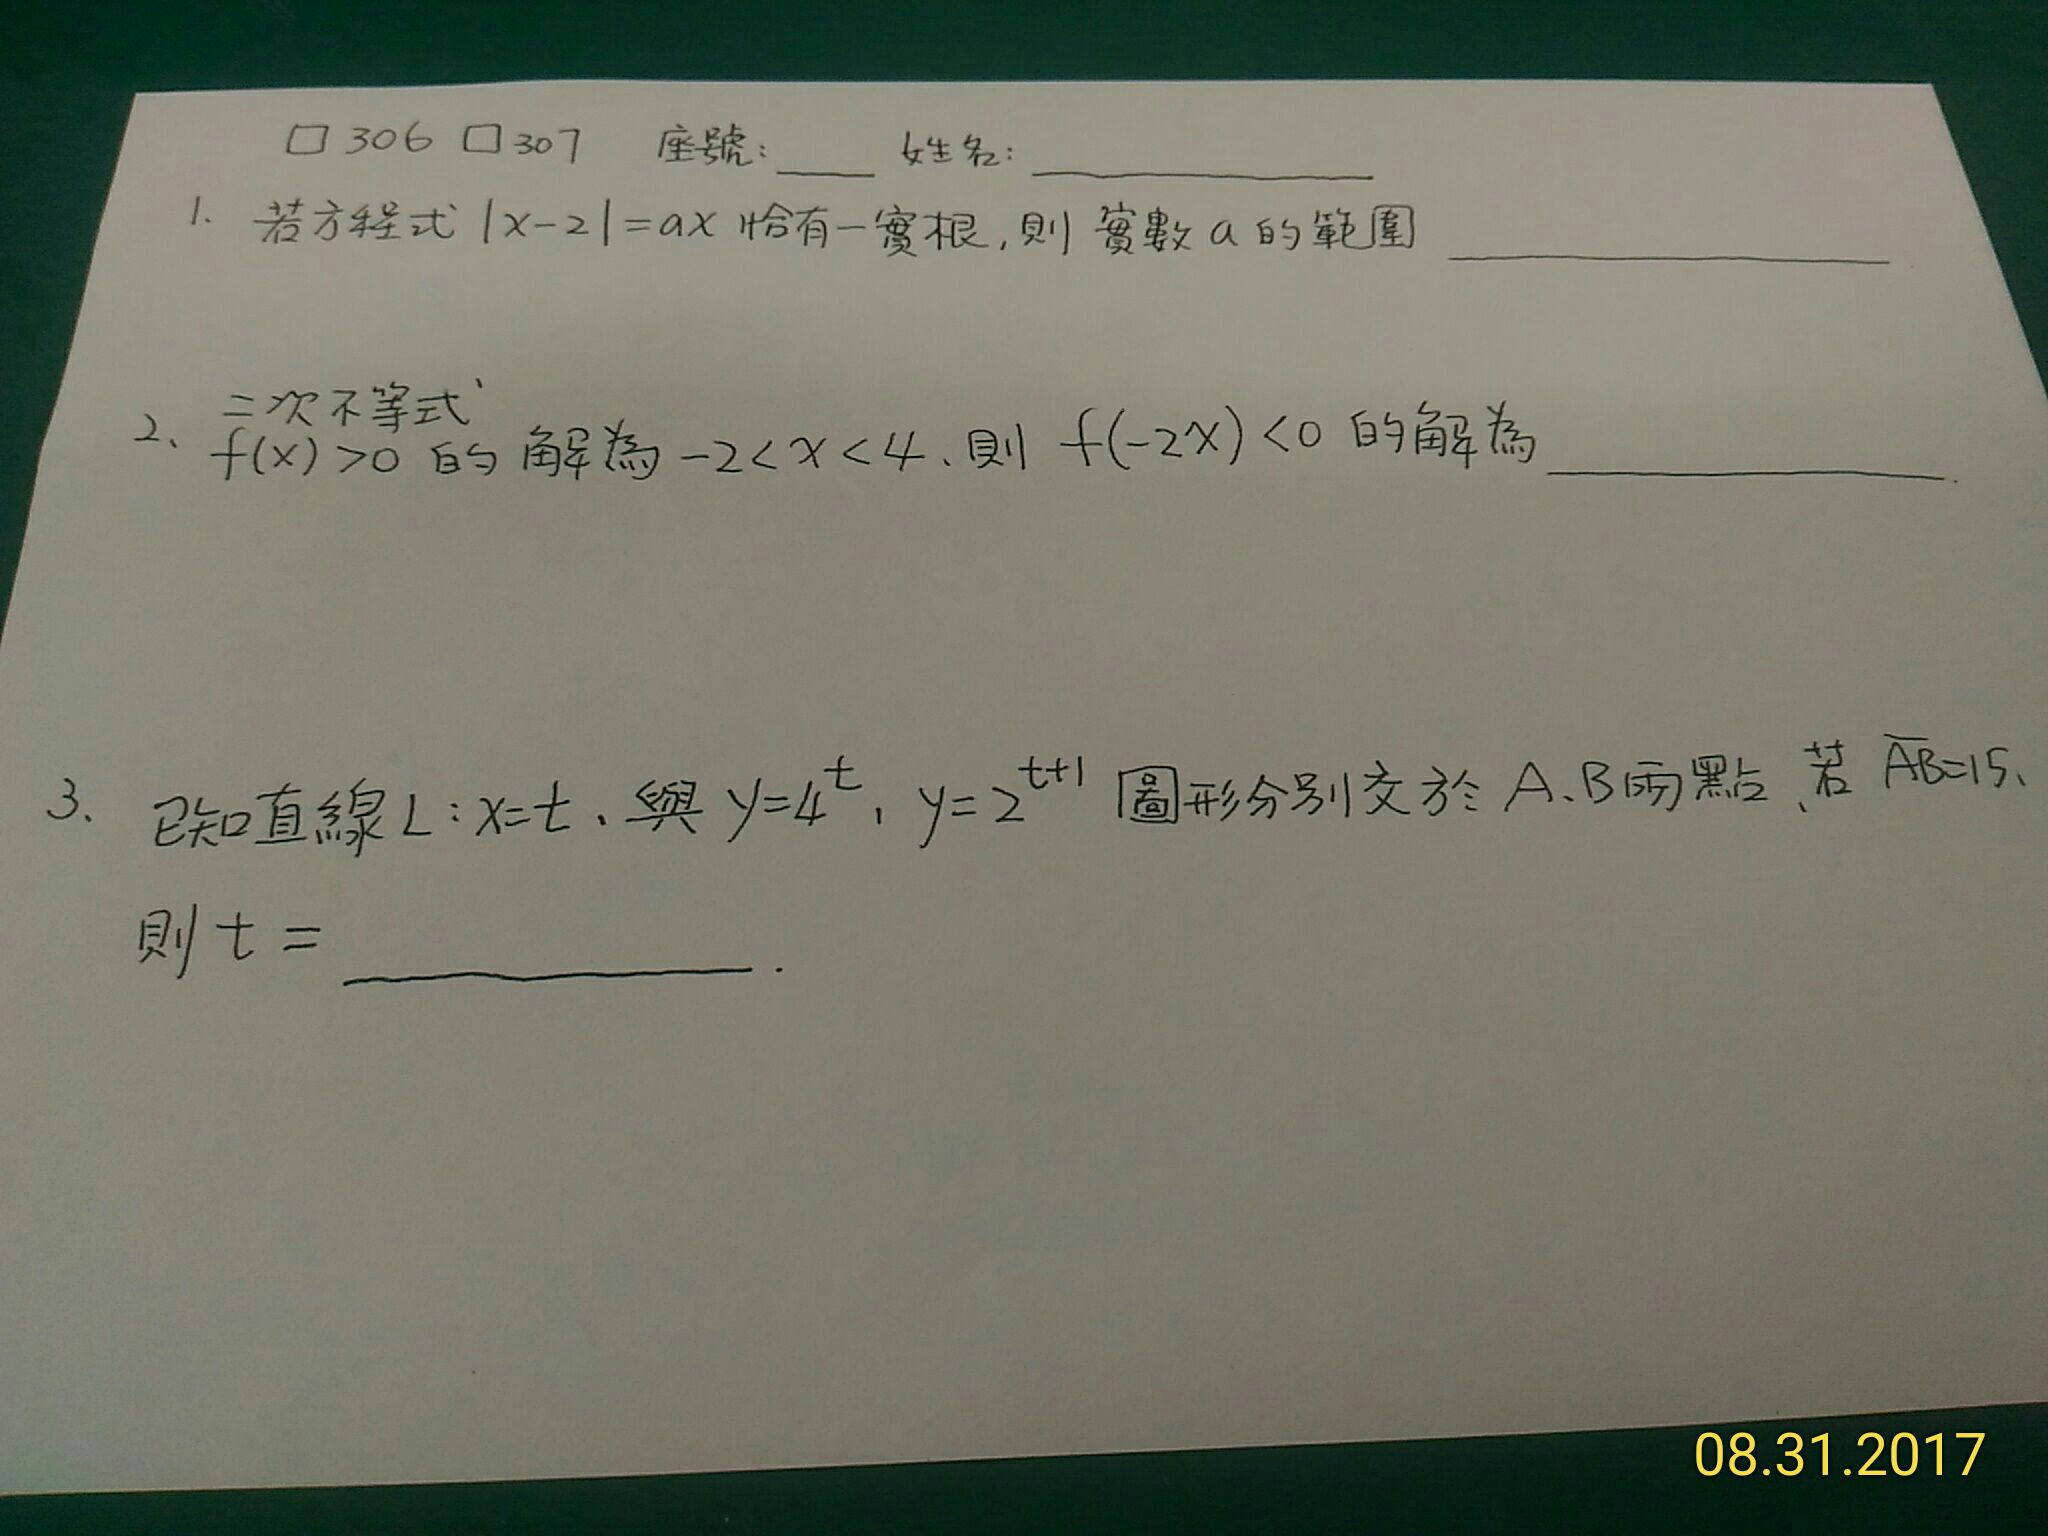 □ 306 □ 307 座號: ____ 姓名: __________
1. 若方程式 |x-2|=ax 恰有一實根,則 實數 a 的範圍 __________
二次不等式
2、 f(x)>0 的解為 -2<x<4、則 f(-2x)<0 的解為 __________.
3、 已知直線 L:x=t、與 y=4^t, y=2^{t+1} 圖形分別交於 A、B兩點、若 \overline{AB}=15、
則 t = __________.
08.31.2017